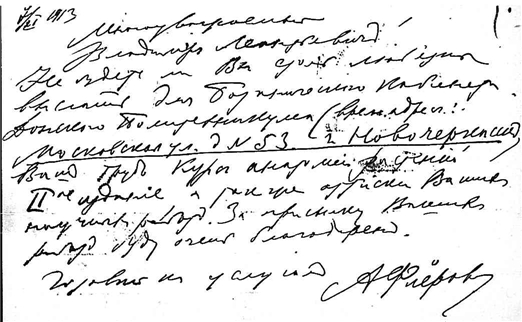 4/XI 1913
Многоуважаемый
Владимир Леонтьевич!
Не будете ли Вы столь любезны
выслать для Ботанического Кабинета
Донского Политехникума (врем. адрес:
Московская ул. д N 53. г Новочеркасск)
Ваш труд Курс анатомии растений
II ое издание а также оттиски Ваших
научных работ. За присылку Ваших
работ буду очень благодарен.
Готовый к услугам АФлёров